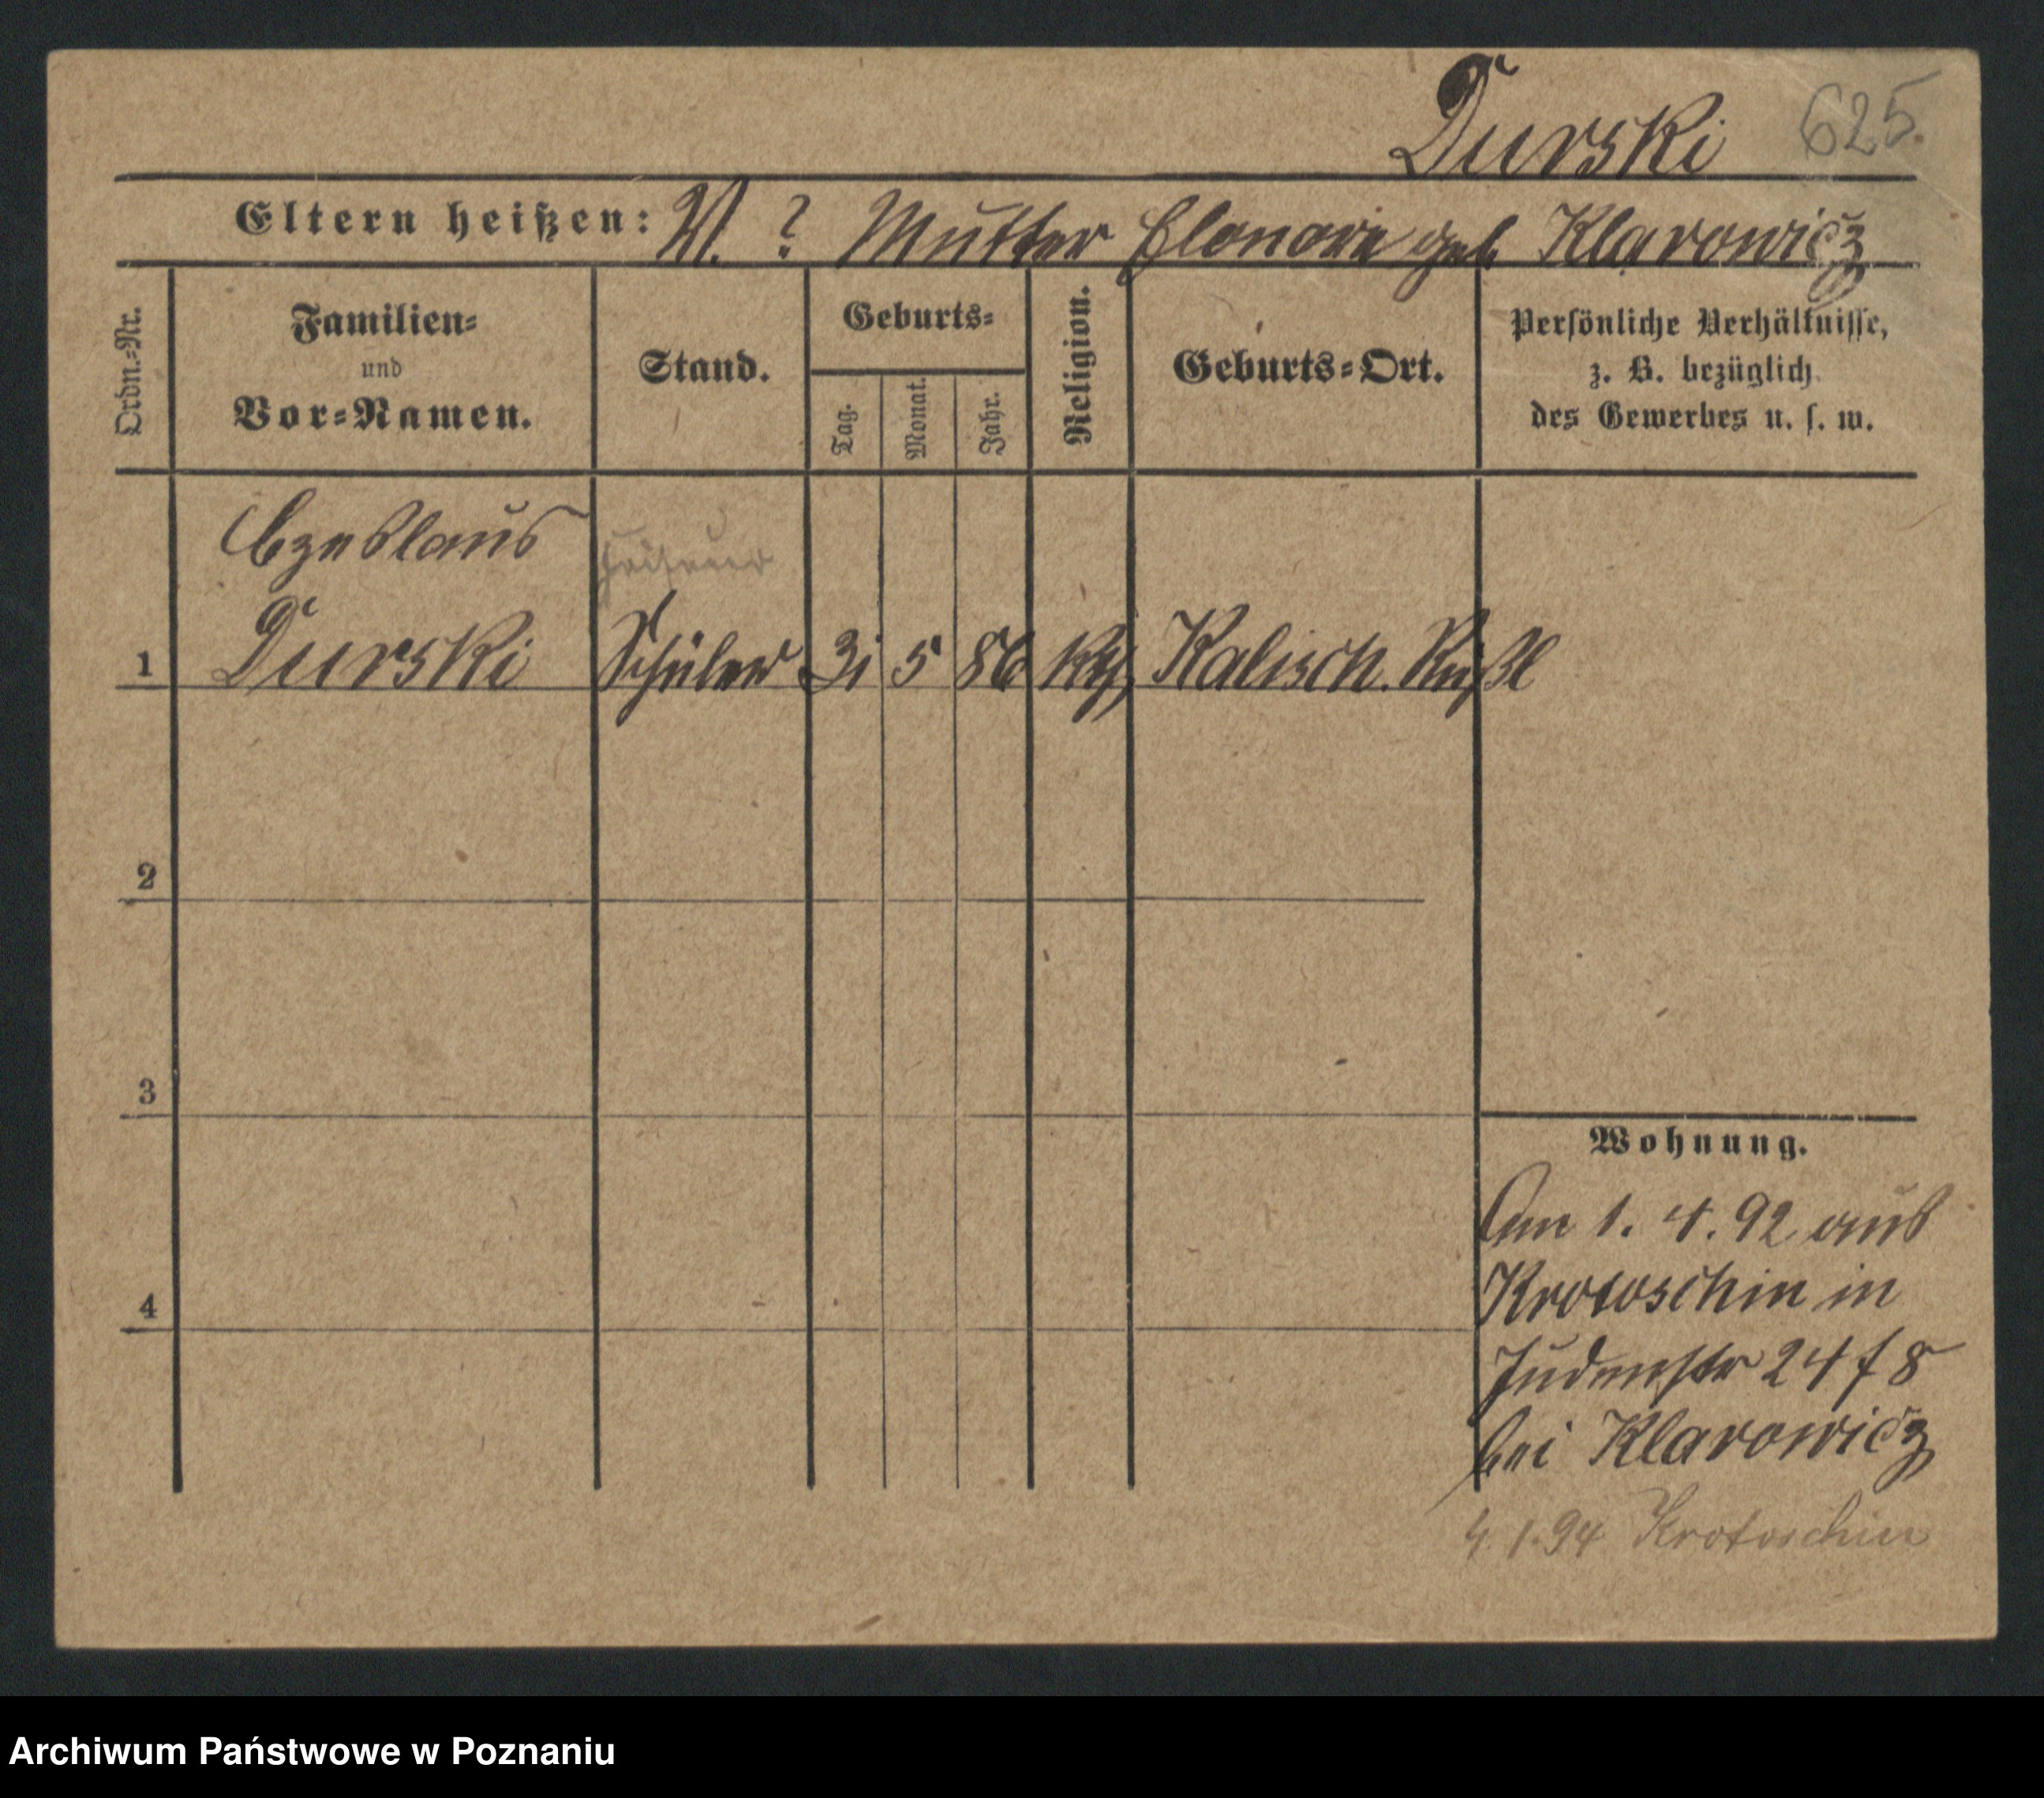 Durski 625.
Eltern heißen: V. ? Mutter Elonore geb Klarowicz
Ordn.-Nr.
Familien-
und
Vor-Namen.
Stand.
Geburts-
Tag.
Monat.
Jahr.
Religion.
Geburts-Ort.
Persönliche Verhältnisse,
z. B. bezüglich
des Gewerbes u. s. w.
Czeslaus
1 Durski Schüler 31 5 86 kth Kalisch. Rußl
2
3
4
Wohnung.
Am 1. 4. 92 aus
Krotoschin in
Judenstr 24 f 8
bei Klarowicz
4. 1. 94 Krotoschin
Archiwum Państwowe w Poznaniu